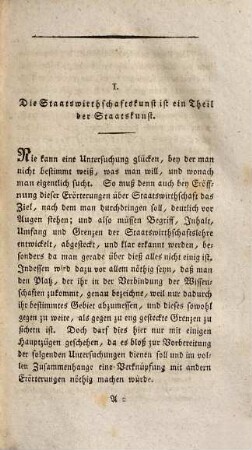 I.
Die Staatswirthschaftskunst ist ein Theil
der Staatskunst.
Nie kann eine Untersuchung glücken, bey der man
nicht bestimmt weiß, was man will, und wonach
man eigentlich sucht. So muß denn auch bey Eröff-
nung dieser Erörterungen über Staatswirthschaft das
Ziel, nach dem man durchdringen soll, deutlich vor
Augen stehen; und also müssen Begriff, Inhalt,
Umfang und Grenzen der Staatswirthschaftslehre
entwickelt, abgesteckt, und klar erkannt werden, be-
sonders da man gerade über dieß alles nicht einig ist.
Indessen wird dazu vor allem nöthig seyn, daß man
den Platz, der ihr in der Verbindung der Wissen-
schaften zukommt, genau bezeichne, weil nur dadurch
ihr bestimmtes Gebiet abzumessen, und dieses sowohl
gegen zu weite, als gegen zu eng gesteckte Grenzen zu
sichern ist. Doch darf dies hier nur mit einigen
Hauptzügen geschehen, da es bloß zur Vorbereitung
der folgenden Untersuchungen dienen soll und im vol-
len Zusammenhange eine Verknüpfung mit andern
Erörterungen nöthig machen würde.
A 2